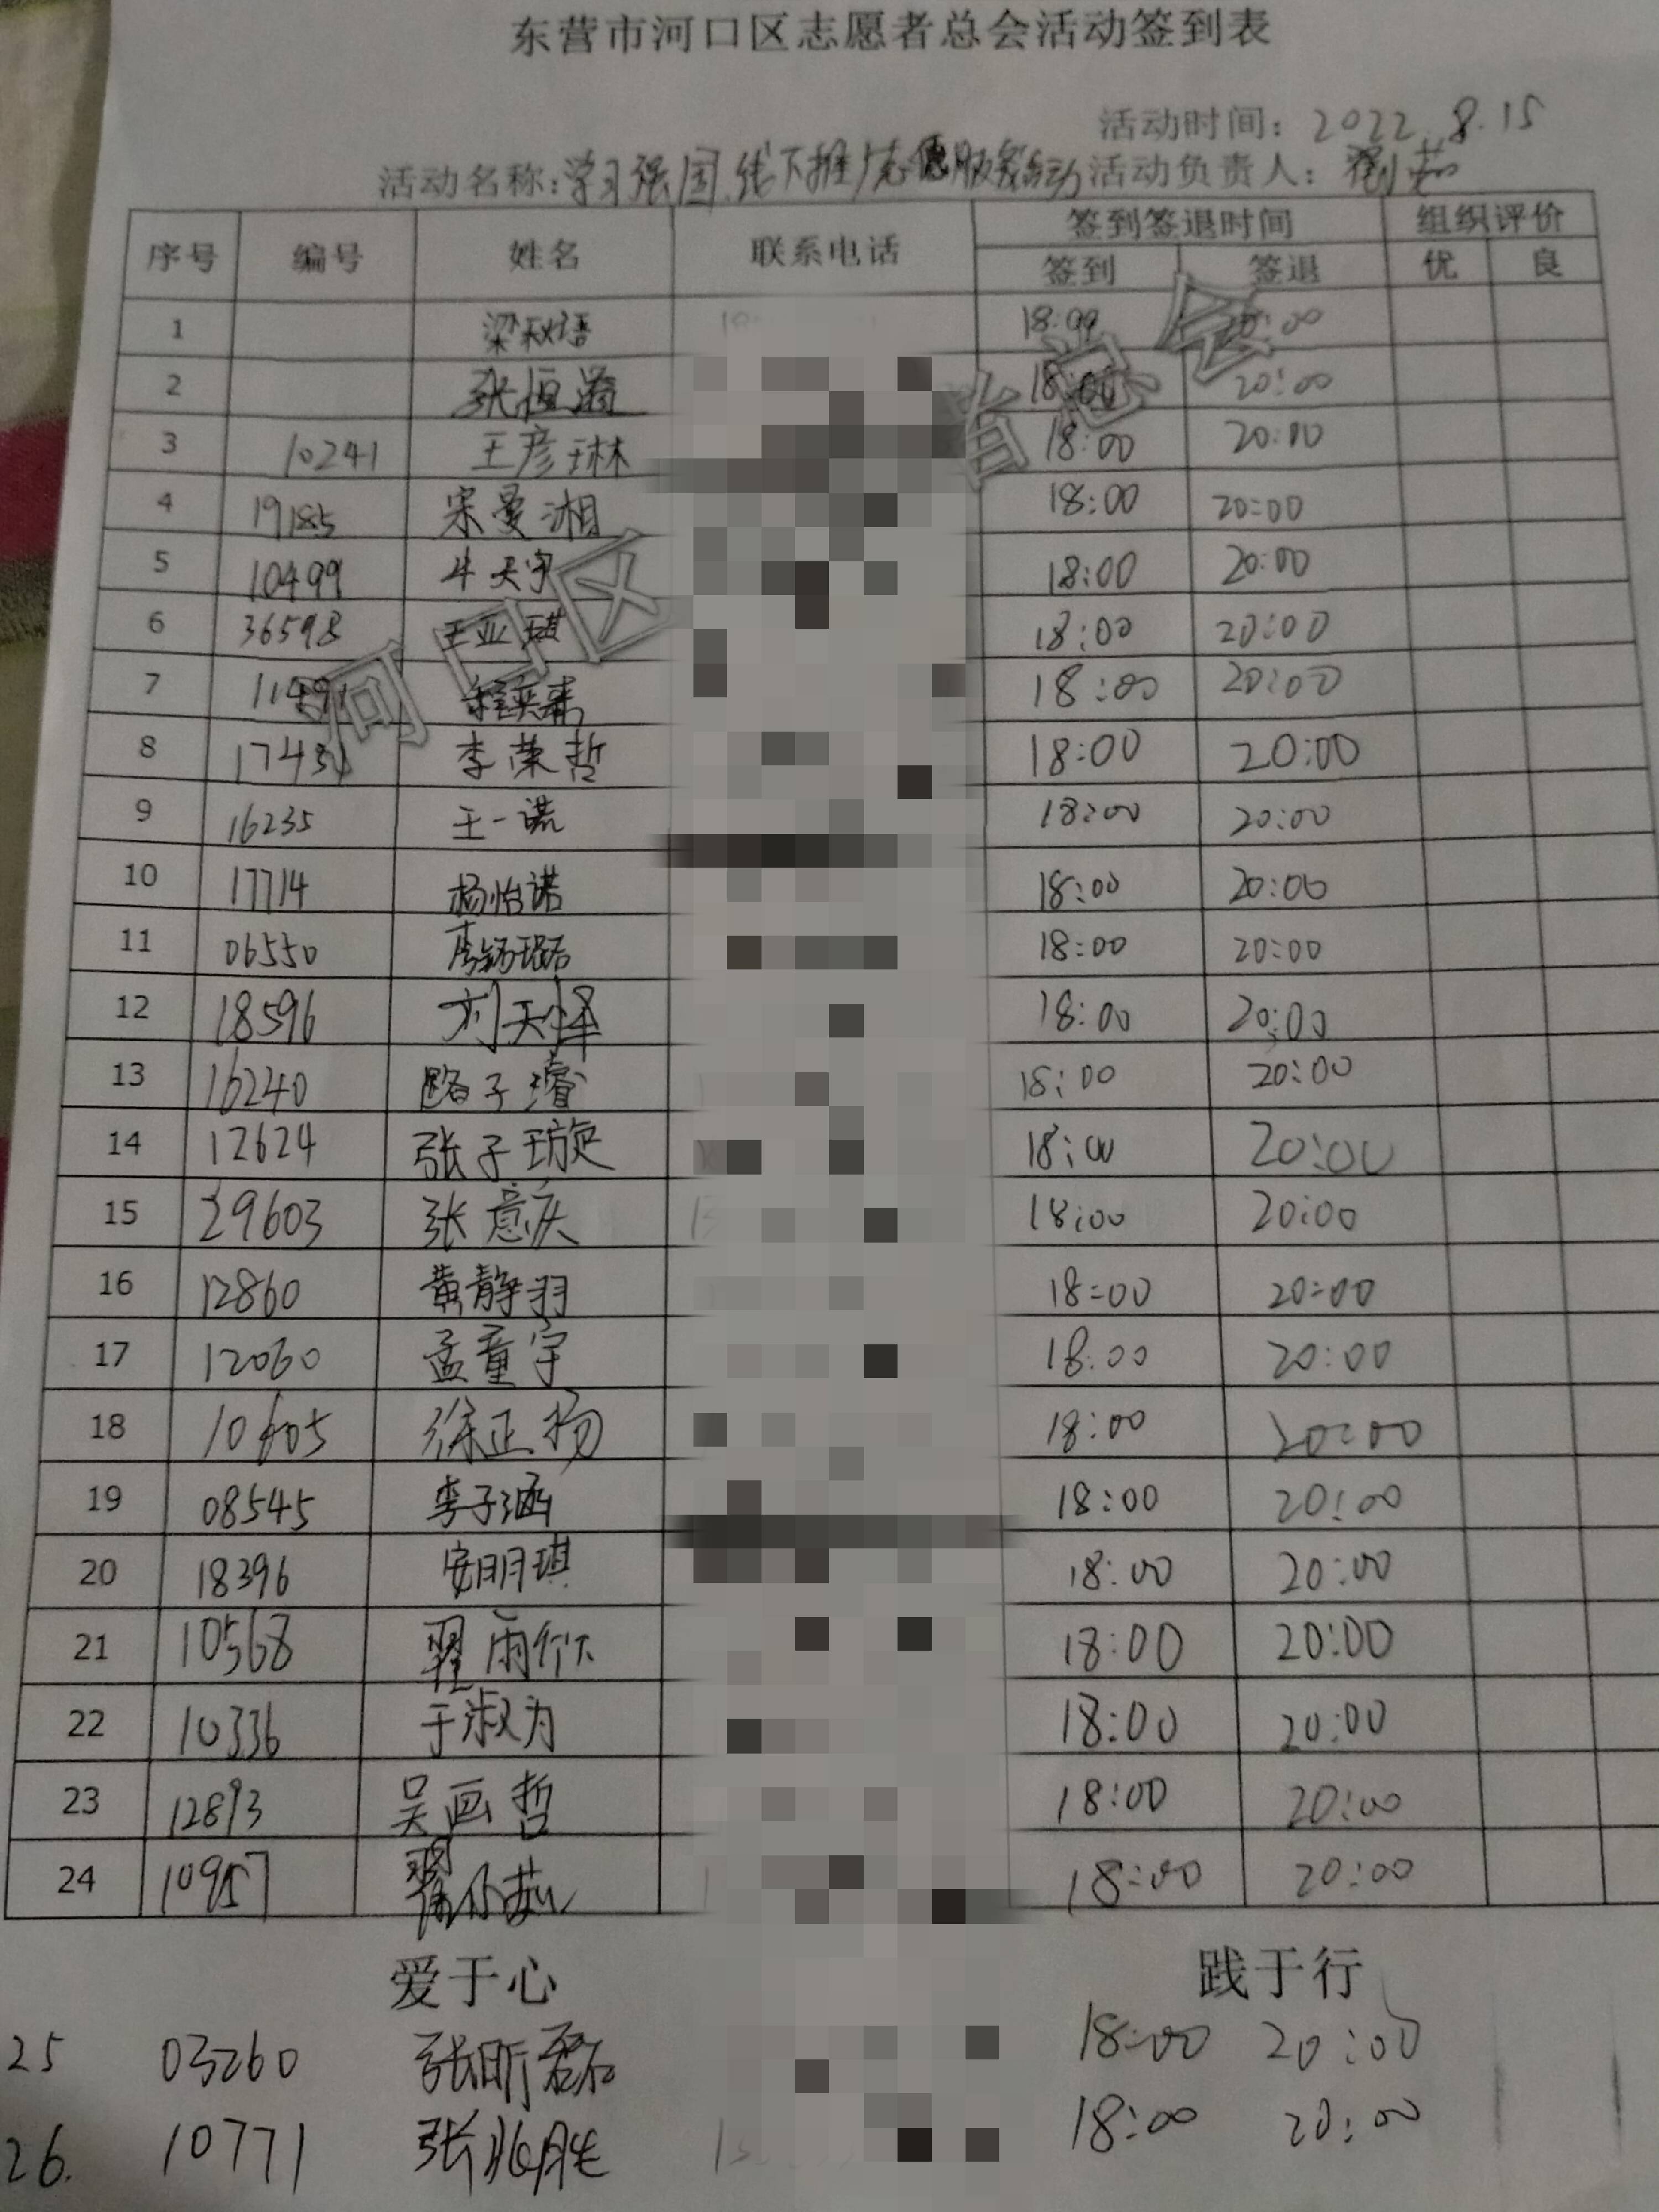 东营市河口区志愿者总会活动签到表
活动时间：2022.8.15
活动名称：学习强国线下推广志愿服务活动 活动负责人：
序号 编号 姓名 联系电话 签到签退时间 组织评价
签到 签退 优 良
1 梁秋语 18:00 20:00
2 张恒 18:00 20:00
3 10241 王彦琳 18:00 20:00
4 19185 宋曼湘 18:00 20:00
5 10499 牛天宇 18:00 20:00
6 36598 王亚琪 18:00 20:00
7 程奕 18:00 20:00
8 17431 李荣哲 18:00 20:00
9 16235 王一诺 18:00 20:00
10 17714 杨怡诺 18:00 20:00
11 06550 18:00 20:00
12 18596 刘天泽 18:00 20:00
13 16240 路子璿 18:00 20:00
14 12624 张子璇 18:00 20:00
15 29603 张意庆 18:00 20:00
16 12860 黄静羽 18:00 20:00
17 12060 孟童宇 18:00 20:00
18 10605 徐正扬 18:00 20:00
19 08545 李子涵 18:00 20:00
20 18396 安玥琪 18:00 20:00
21 10568 翟雨 18:00 20:00
22 10336 于淑为 18:00 20:00
23 12893 吴画哲 18:00 20:00
24 10957 18:00 20:00
爱于心 践于行
25 03260 张昕磊 18:00 20:00
26. 10771 张兆胜 18:00 20:00
河口区
者总会